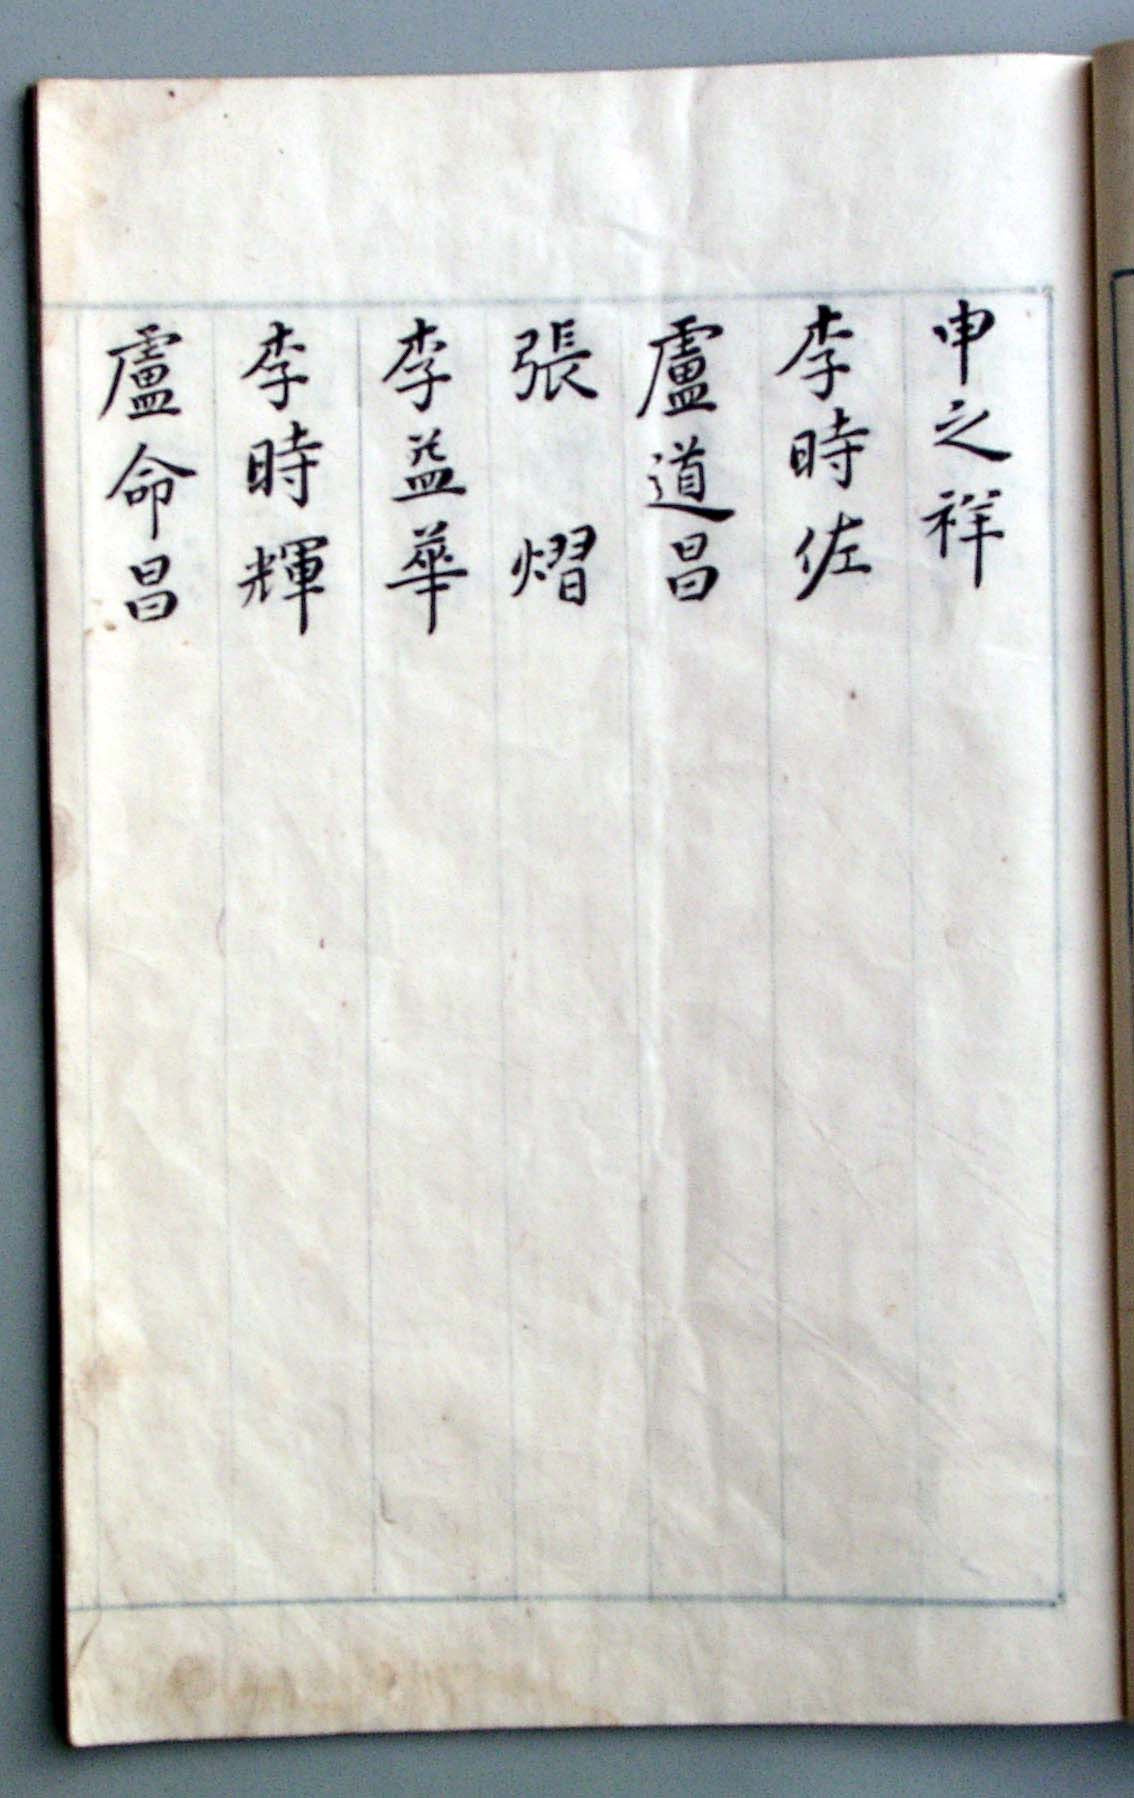 申之祥
李時佐
盧道昌
張熠
李益華
李時輝
盧命昌